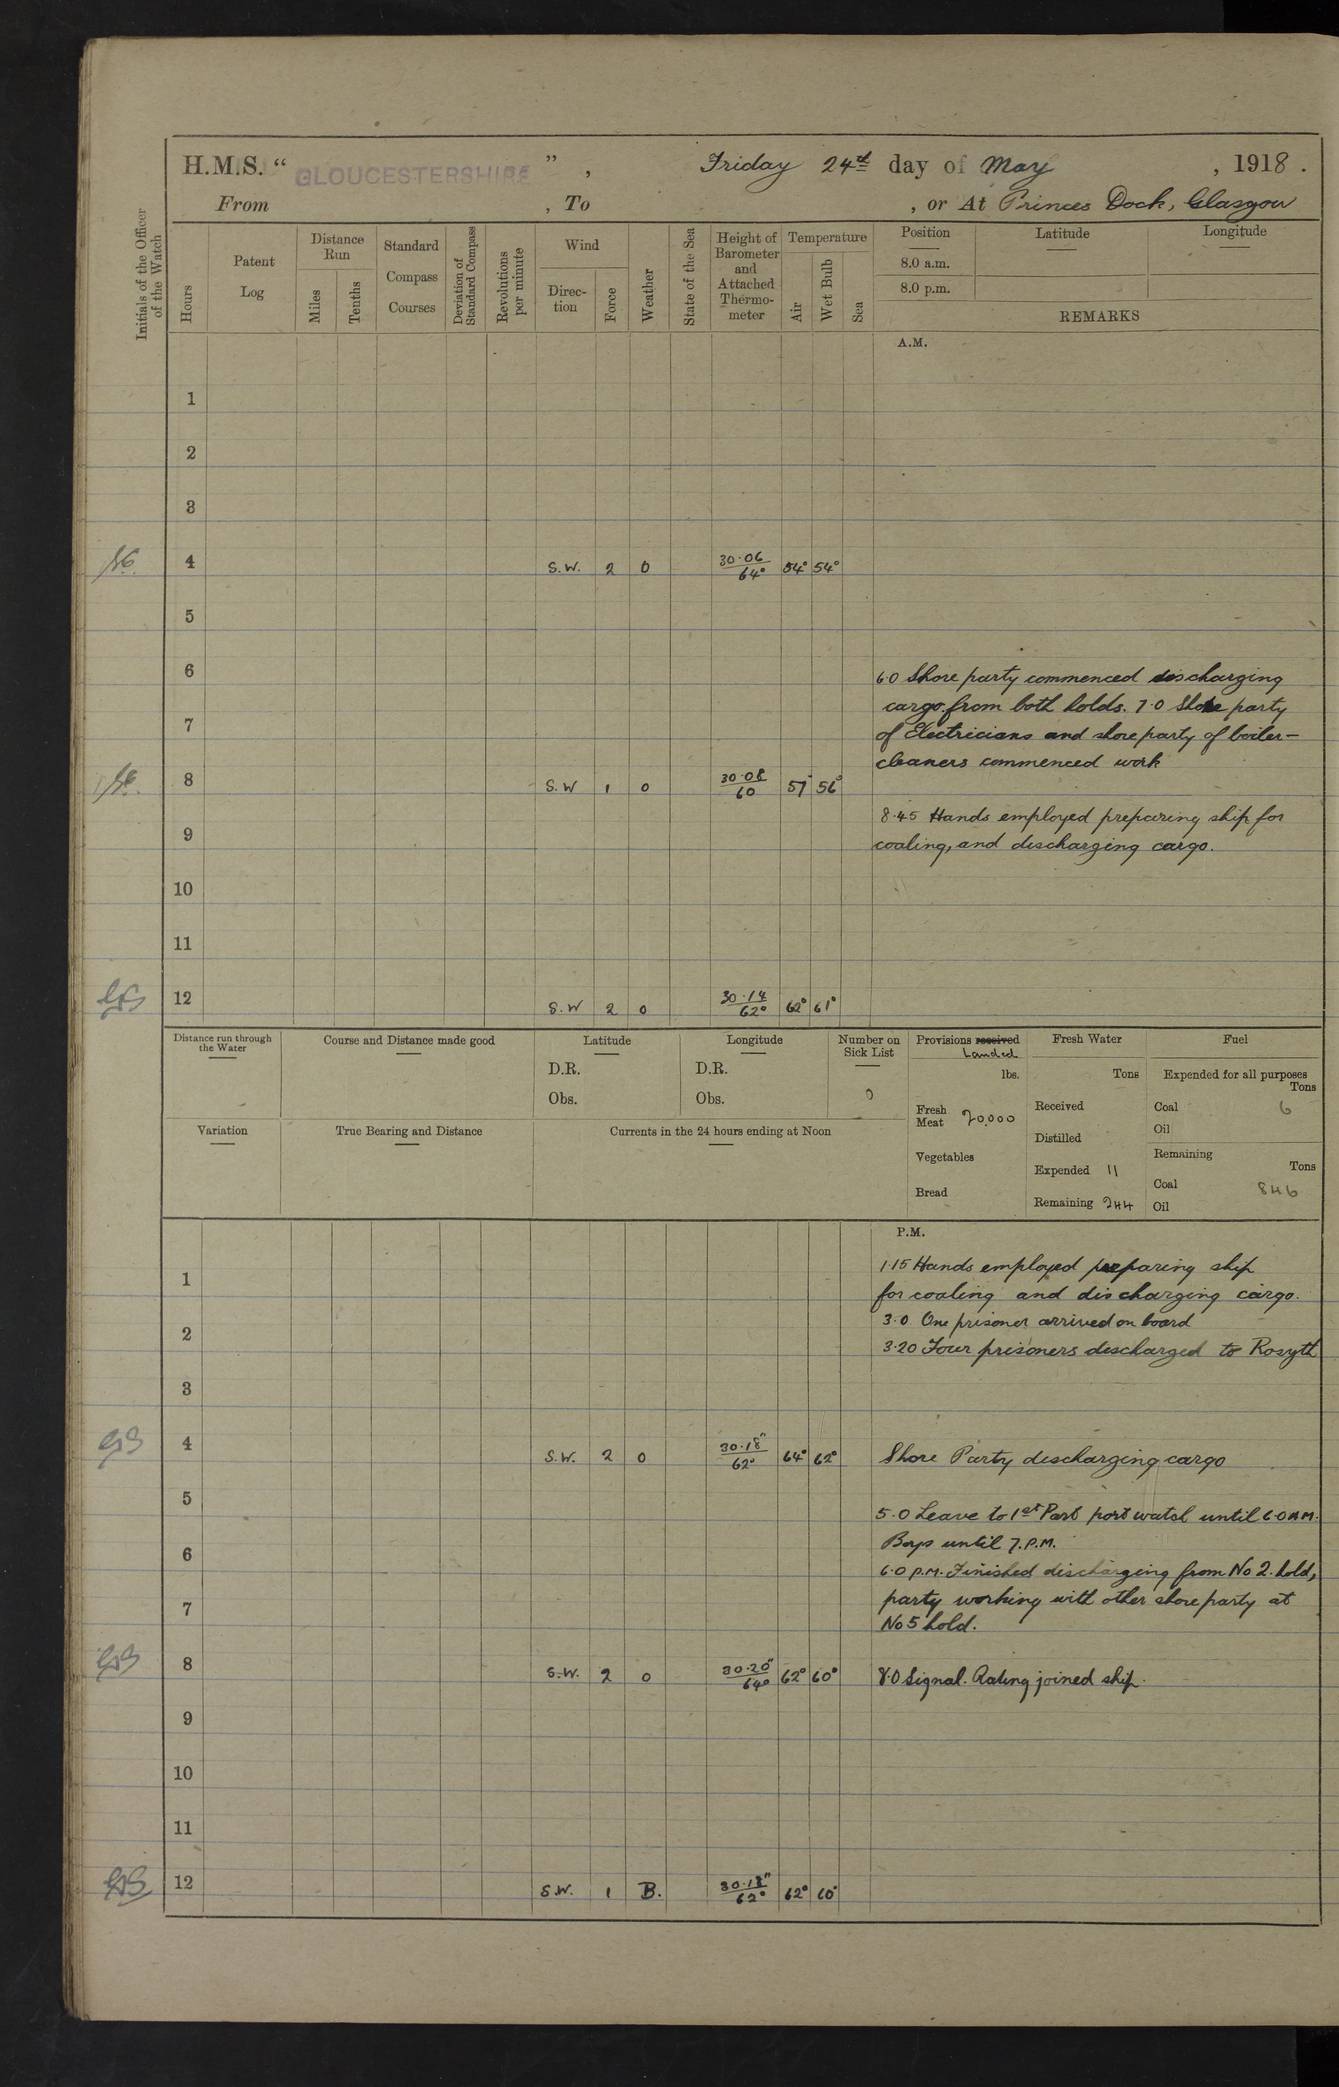 H.M.S. “ GLOUCESTERSHIRE ”, Friday 24th day of May , 1918.
From , To , or At Princes Dock, Glasgow
Initials of the Officer of the Watch
Hours
Patent Log
Distance Run
Miles
Tenths
Standard Compass Courses
Deviation of Standard Compass
Revolutions per minute
Wind
Direc-tion
Force
Weather
State of the Sea
Height of Barometer and Attached Thermo-meter
Temperature
Air
Wet Bulb
Sea
Position
8.0 a.m.
8.0 p.m.
Latitude
Longitude
REMARKS
A.M.
1
2
3
4 S.W. 2 0 30.06 64° 54° 54°
5
6
6.0 Shore party commenced discharging
cargo from both holds. 7.0 Shore party
7
of Electricians and shore party of boiler-
cleaners commenced work
8 S.W 1 0 30.08 60 57° 56°
8.45 Hands employed preparing ship for
9
coaling, and discharging cargo.
10
11
12 S.W 2 0 30.14 62° 62° 61°
Distance run through the Water
Course and Distance made good
Latitude
D.R.
Obs.
Longitude
D.R.
Obs.
Number on Sick List
0
Provisions received
Landed
lbs.
Fresh Meat 70,000
Vegetables
Bread
Fresh Water
Tons
Received
Distilled
Expended 11
Remaining 244
Fuel
Expended for all purposes
Tons
Coal 6
Oil
Remaining
Tons
Coal 846
Oil
Variation
True Bearing and Distance
Currents in the 24 hours ending at Noon
P.M.
1.15 Hands employed preparing ship
1
for coaling and discharging cargo.
3.0 One prisoner arrived on board
2
3.20 Four prisoners discharged to Rosyth
3
4 S.W. 2 0 30.18" 62° 64° 62° Shore Party discharging cargo
5
5.0 Leave to 1st Part port watch until 6.0 A.M.
Boys until 7. P.M.
6
6.0 P.M. Finished discharging from No 2. hold,
party working with other shore party at
7
No 5 hold.
8 S.W. 2 0 30.20" 64° 62° 60° 8.0 Signal. Rating joined ship.
9
10
11
12 S.W. 1 B. 30.18" 62° 62° 60°